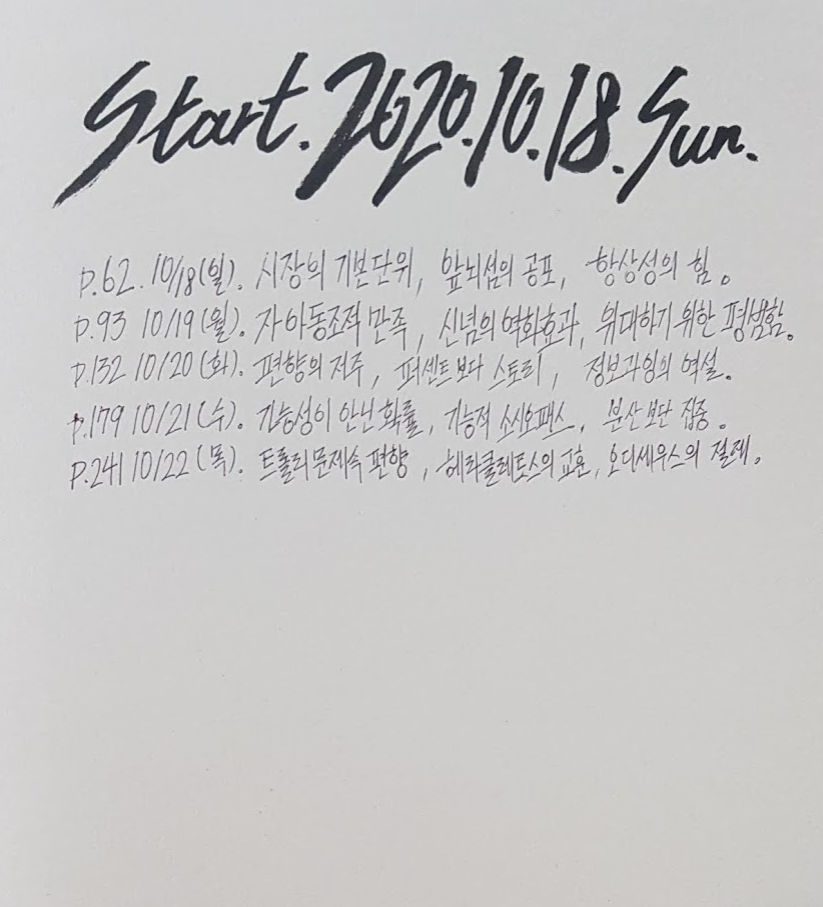 Start. 2020.10.18. Sun.
p.62. 10/18(일). 시장의 기본단위, 앞뇌섬의 공포, 항상성의 힘.
p.93 10/19(월). 자아동조적 만족, 신념의 역화효과, 위대하기 위한 평범함.
p.132 10/20(화). 편향의 저주, 퍼센트보다 스토리, 정보과잉의 역설.
p.179 10/21(수). 가능성이 안닌 확률, 기능적 소시오패스, 분산보단 집중.
p.241 10/22(목). 트롤리문제속 편향, 헤라클레토스의 교훈, 오디세우스의 절제.